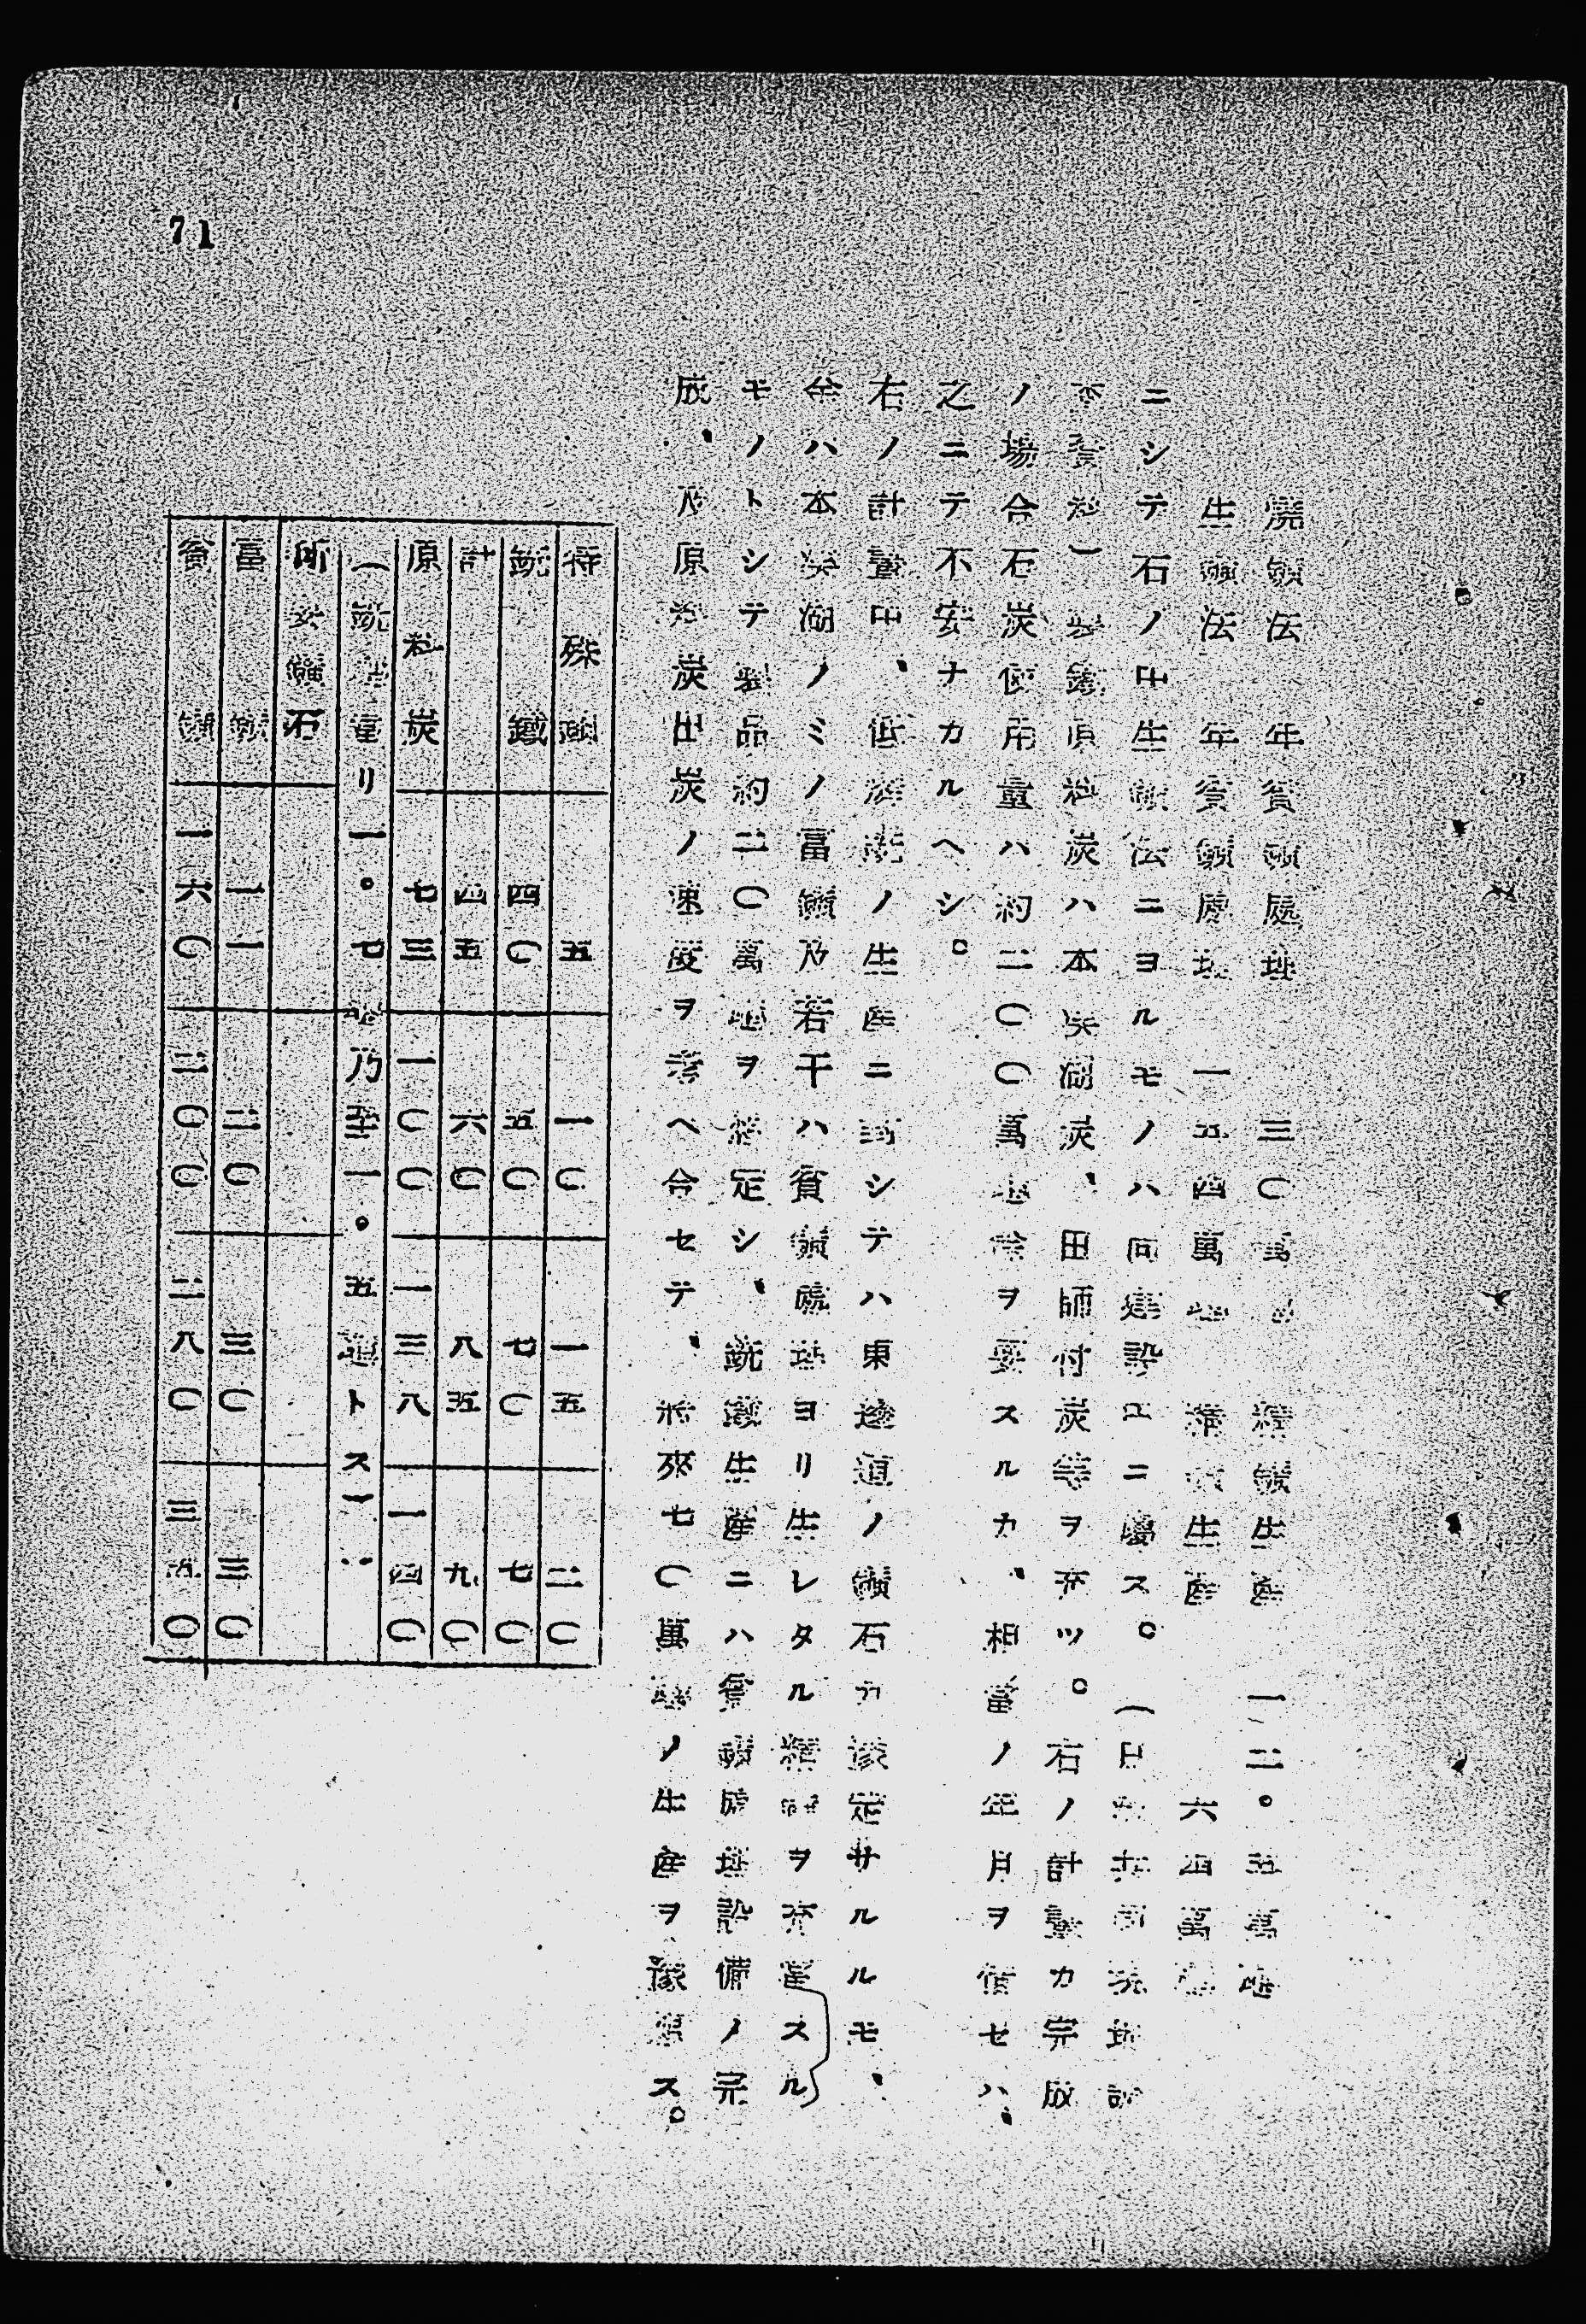 71
焼鑛法 年貧鑛処理 三〇萬噸 精鑛生産 一二。五萬噸
生鑛法 年貧鑛處理 一五四萬噸 精鑛生産 六四萬噸
ニシテ石ノ中生鑛法ニヨルモノハ尚建設ユニ屬ス。(日
本 製鐵原料炭ハ本渓湖炭、田師付炭等ヲ充ツ。右ノ計畫カ完成
ノ場合石炭使用量ハ約二〇〇萬噸 ヲ要スルカ、相當ノ年月ヲ借セハ、
之ニテ不安ナカルヘシ。
右ノ計畫中、低燐銑ノ生産ニ對シテハ東邊道ノ鑛石カ豫定サルルモ、
今ハ本渓湖ノミノ富鑛及若干ハ貧鑛處理ヨリ生レタル精鑛ヲ充當スル
モノトシテ製品約二〇萬噸ヲ豫定シ、銑鐵生産ニハ貧鑛處理設備ノ完
成、及原料炭出炭ノ速度ヲ考ヘ合セテ、將來七〇萬噸ノ生産ヲ豫想ス。
特殊銑 五 一〇 一五 二〇
銑鐵 四〇 五〇 七〇 七〇
計 四五 六〇 八五 九〇
原料炭 七三 一〇〇 一三八 一四〇
(銑 噸當リ一。七噸乃至一。五噸トス)
所要鑛石
富鑛 一一 二〇 三〇 三〇
貧鑛 一六〇 二〇〇 二八〇 三五〇